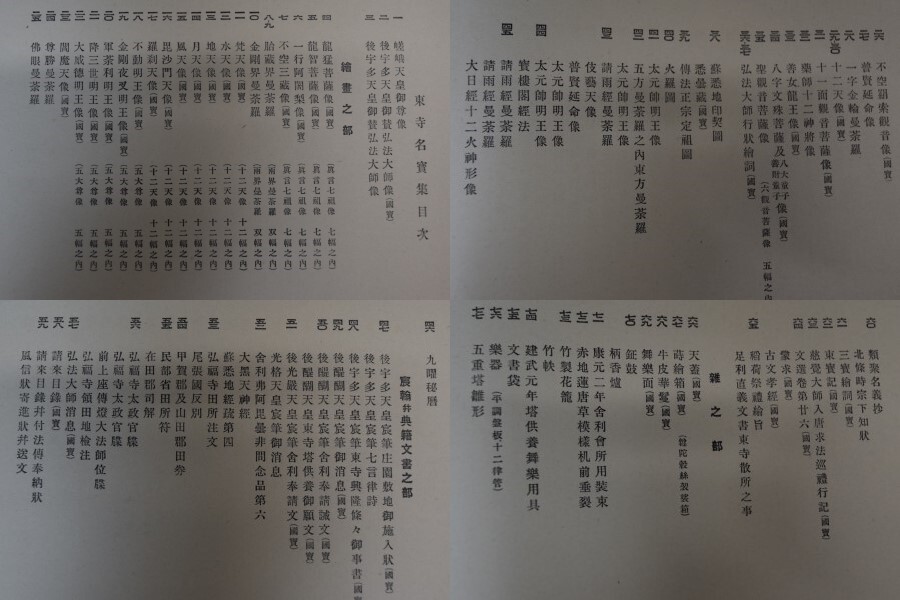 東寺名寶集目次
繪畫之部
一 嵯峨天皇御尊像
二 後宇多天皇御賛弘法大師像(國寶)
三 後宇多天皇御賛弘法大師像
四 龍猛菩薩像(國寶)(眞言七祖像 七幅之內)
五 龍智菩薩像(國寶)(眞言七祖像 七幅之內)
六 一行阿闍梨像(國寶)(眞言七祖像 七幅之內)
七 不空三藏像(國寶)(眞言七祖像 七幅之內)
八九 胎藏界曼荼羅(兩界曼荼羅 双幅之內)
一〇 金剛界曼荼羅(兩界曼荼羅 双幅之內)
一一 梵天像(國寶)(十二天像 十二幅之內)
一二 水天像(國寶)(十二天像 十二幅之內)
一三 地天像(國寶)(十二天像 十二幅之內)
一四 日天像(國寶)(十二天像 十二幅之內)
一五 風天像(國寶)(十二天像 十二幅之內)
一六 毘沙門天像(國寶)(十二天像 十二幅之內)
一七 羅刹天像(國寶)(十二天像 十二幅之內)
一八 不動明王像(國寶)(五大尊像 五幅之內)
一九 金剛夜叉明王像(國寶)(五大尊像 五幅之內)
二〇 軍荼利明王像(國寶)(五大尊像 五幅之內)
二一 降三世明王像(國寶)(五大尊像 五幅之內)
二二 大威德明王像(國寶)(五大尊像 五幅之內)
二三 閻魔天像(國寶)
二四 尊勝曼荼羅
二五 佛眼曼荼羅
二六 不空羂索觀音像(國寶)
二七 普賢延命像
二八 一字金輪曼荼羅
十二天像(國寶)
三一 十一面觀音菩薩像(國寶)
藥師十二神將像
善女龍王像(國寶)
八字文殊菩薩及八大童子善財童子像(國寶)
聖觀音菩薩像(六觀音菩薩像 五幅之內
弘法大師行狀繪詞(國寶)
蘇悉地印契圖
悉曇藏(國寶)
傳法正宗定祖圖
火羅圖
太元帥明王像
五方曼荼羅之內東方曼荼羅
太元帥明王像
請雨經曼荼羅
伎藝天像
普賢延命像
太元帥明王像
寶樓閣經法
請雨經曼荼羅
請雨經曼荼羅
大日經十二火神形像
九曜秘曆
宸翰並典籍文書之部
後宇多天皇宸筆庄園敷地御施入狀(國寶)
後宇多天皇宸筆七言律詩
後宇多天皇宸筆東寺興隆條々御事書(國寶
後醍醐天皇宸筆御消息(國寶)
後醍醐天皇宸筆舍利奉請誡文(國寶)
後醍醐天皇東寺塔供養御願文(國寶)
後光嚴天皇宸筆舍利奉請文(國寶)
光格天皇宸筆御消息
舍利弗阿毘曇非問念品第六
大黑天神經
蘇悉地經疏第四
尾張國反別
弘福寺田所注文
民部省田所符
甲賀郡及山田郡田劵
在田郡司解
弘福寺太政官牒
弘福寺太政官牒
前上座傳燈大法師位牒
弘福寺領田地檢注
弘法大師消息(國寶)
請來目錄(國寶)
請來目錄并付法傳奉納狀
風信狀寄進狀并送文
類聚名義抄
北條時宗下知狀
三寶繪詞(國寶)
東寶記(國寶)
慈覺大師入唐求法巡禮行記(國寶)
文選卷第廿六(國寶)
象求(國寶)
古文孝經(國寶)
稻荷祭禮繪旨
足利直義文書東寺散所之事
雜之部
天蓋(國寶)
蒔繪箱(國寶)(䩭陀穀絲袈裟箱)
牛皮華鬘(國寶)
舞樂面(國寶)
鉦鼓
柄香爐
康元二年舍利會所用裝束
赤地蓮唐草模樣机前垂裂
竹製花籠
竹帙
建武元年塔供養舞樂用具
文書袋
樂器(平調盤板十二律管)
五重塔雛形